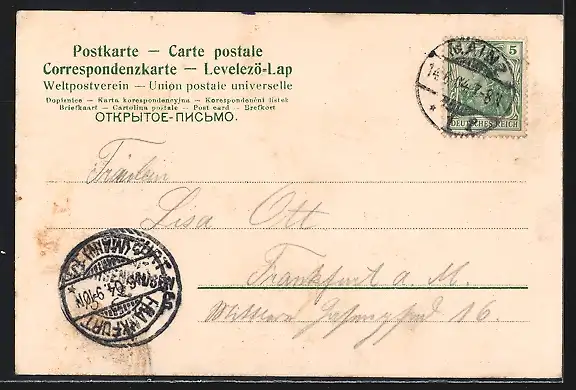 Postkarte — Carte postale
Correspondenzkarte — Levelezö-Lap
Weltpostverein — Union postale universelle
Dopisnice — Karta korespondencyjna — Korespondenční lístek
Briefkaart — Cartolina postale — Post card — Brefkort
ОТКРЫТОЕ-ПИСЬМО.
MAINZ
5
DEUTSCHES REICH
Fräulein
Lisa Ott
Frankfurt a. M.
Mittlerer Hasenpfad 16.
FRANKFURT